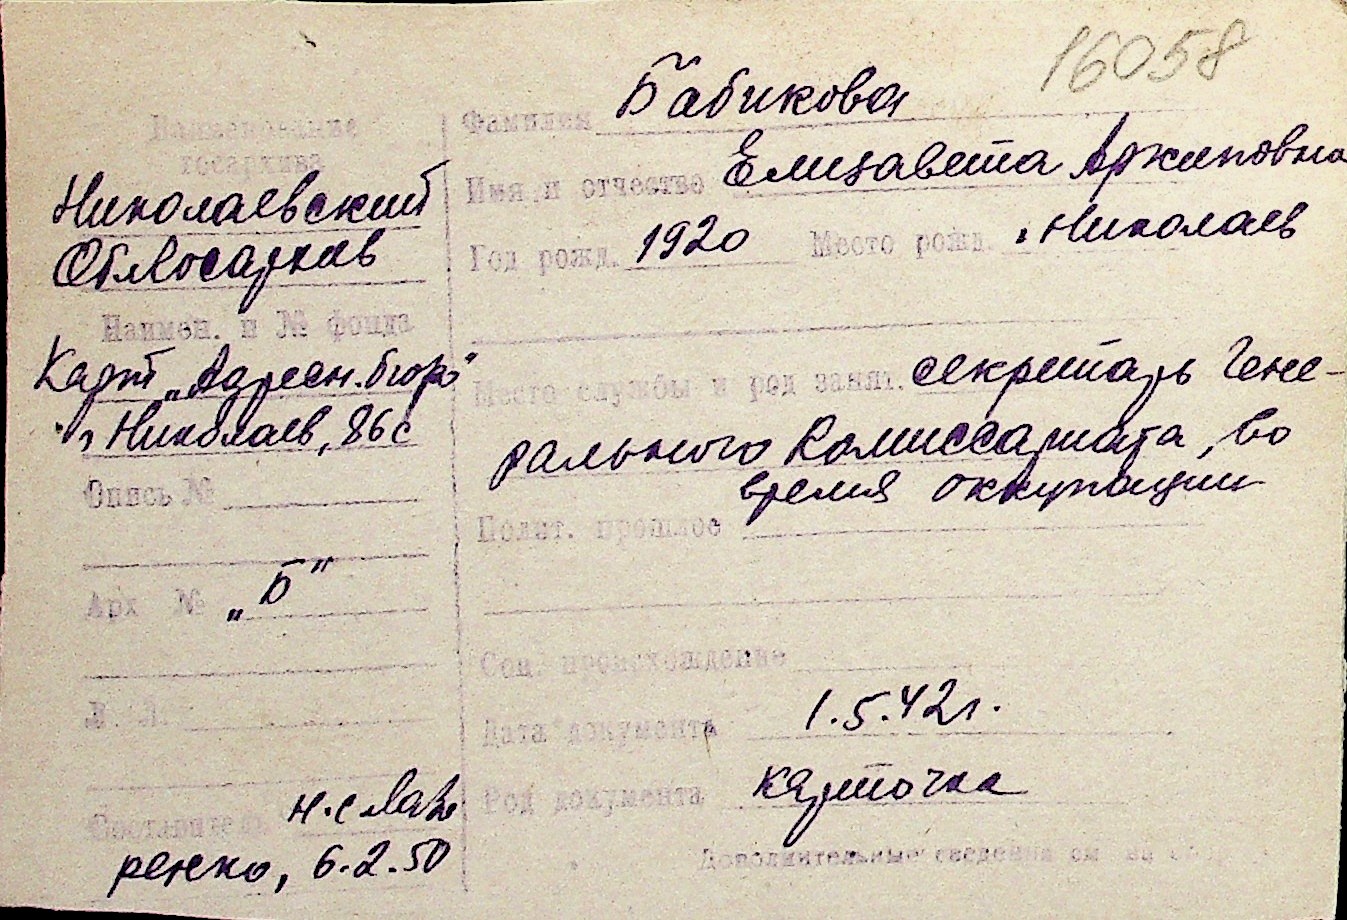 16058
Наименование
госархива
Николаевский
Облгосархив
Наимен. и № фонда
Карт „Адресн. бюро"
г. Николаев, 86с
Опись №
Арх № „Б"
Л. Л.
Составитель н.с Лав
ренко, 6.2.50
Фамилия Бабикова
Имя и отчество Елизавета Архиповна
Год рожд. 1920 Место рожд. г. Николаев
Место службы и род занят. секретарь Гене-
рального Комиссариата, во
время оккупации
Полит. прошлое
Соц. происхождение
Дата документа 1.5.42г.
Род документа карточка
Дополнительные сведения см на